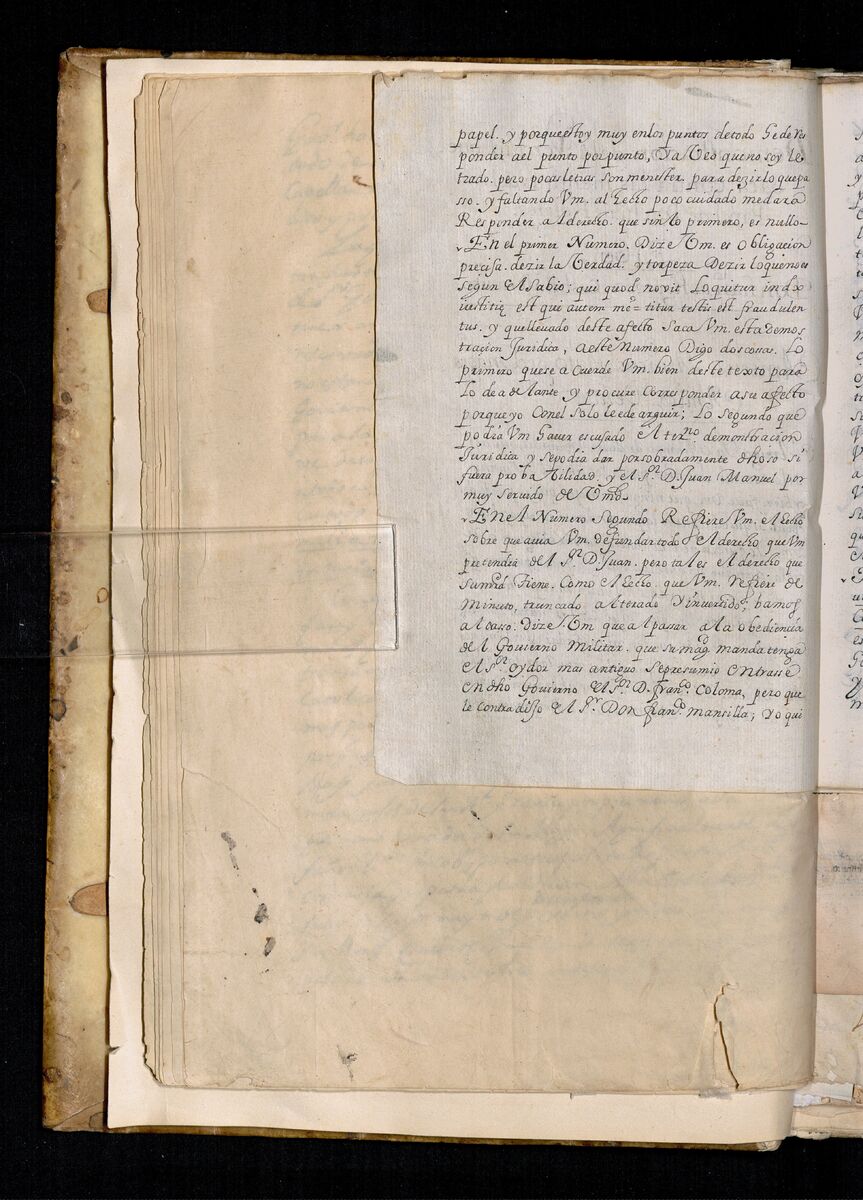 papel. y porque estoy muy en los puntos de todo he de res
ponder a el punto por punto, Ya Veo que no soy le
trado. pero pocas letras son menester. para dezir lo que pa
sso. y faltando Vm. al hecho poco cuidado me dara
Responder al derecho. que sin lo primero, es nullo
En el primer Numero. Dize Vm. es Obligacion
precisa. dezir la Verdad. y torpeza Dezir lo que no es
segun el sabio; qui quod novit loquitur index
iustitię est qui autem mētitur testis est fraudulen
tus. y que lleuado deste afecto saca Vm. esta demos
tracion Juridica, a este Numero Digo dos cossas. Lo
primero que se acuerde Vm. bien deste texto para
lo de adelante y procure corresponder a su afecto
porque yo con el solo le e de arguir; Lo segundo que
podia Vm hauer escusado el terno. demonstracion
Juridica y se podia dar por sobradamente dhoso si
fuera probabilidad. y el sr. D. Juan Manuel por
muy seruido de Vmd.
En el Numero segundo Refiere Vm. el hecho
sobre que auia Vm. de fundar todo el derecho que Vm
pretendia del sr. D. Juan. pero tal es el derecho que
su md. tiene. Como el hecho. que Vm. refiere di
minuto, truncado alterado Y inuertido; bamos
al casso. Dize Vm que al passar a la obediencia
del Gouierno Militar. que su magd. manda tenga
el sr. oydor mas antiguo se presumio entrasse
en dho Gouierno el sr. D. Franco. Coloma, pero que
le contradijo el sr. Don Franco. mansilla; Yo qui